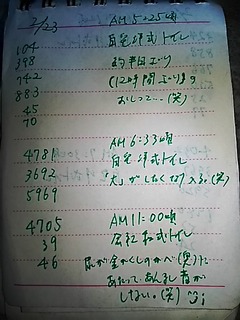 2/23 AM 5:25頃
104 自宅洋式トイレ
398 約半日ぶり
742 (12時間ぶり)の
883 おしっこ…(笑)
45
70
AM 6:33頃
4781 自宅洋式トイレ
3692 大がしたくなり入る。(笑)
5969
4705 AM 11:00頃
39 会社和式トイレ
46 尿が金かくしのかべ(笑)に
あたって、あんまし音が
しない。(笑)